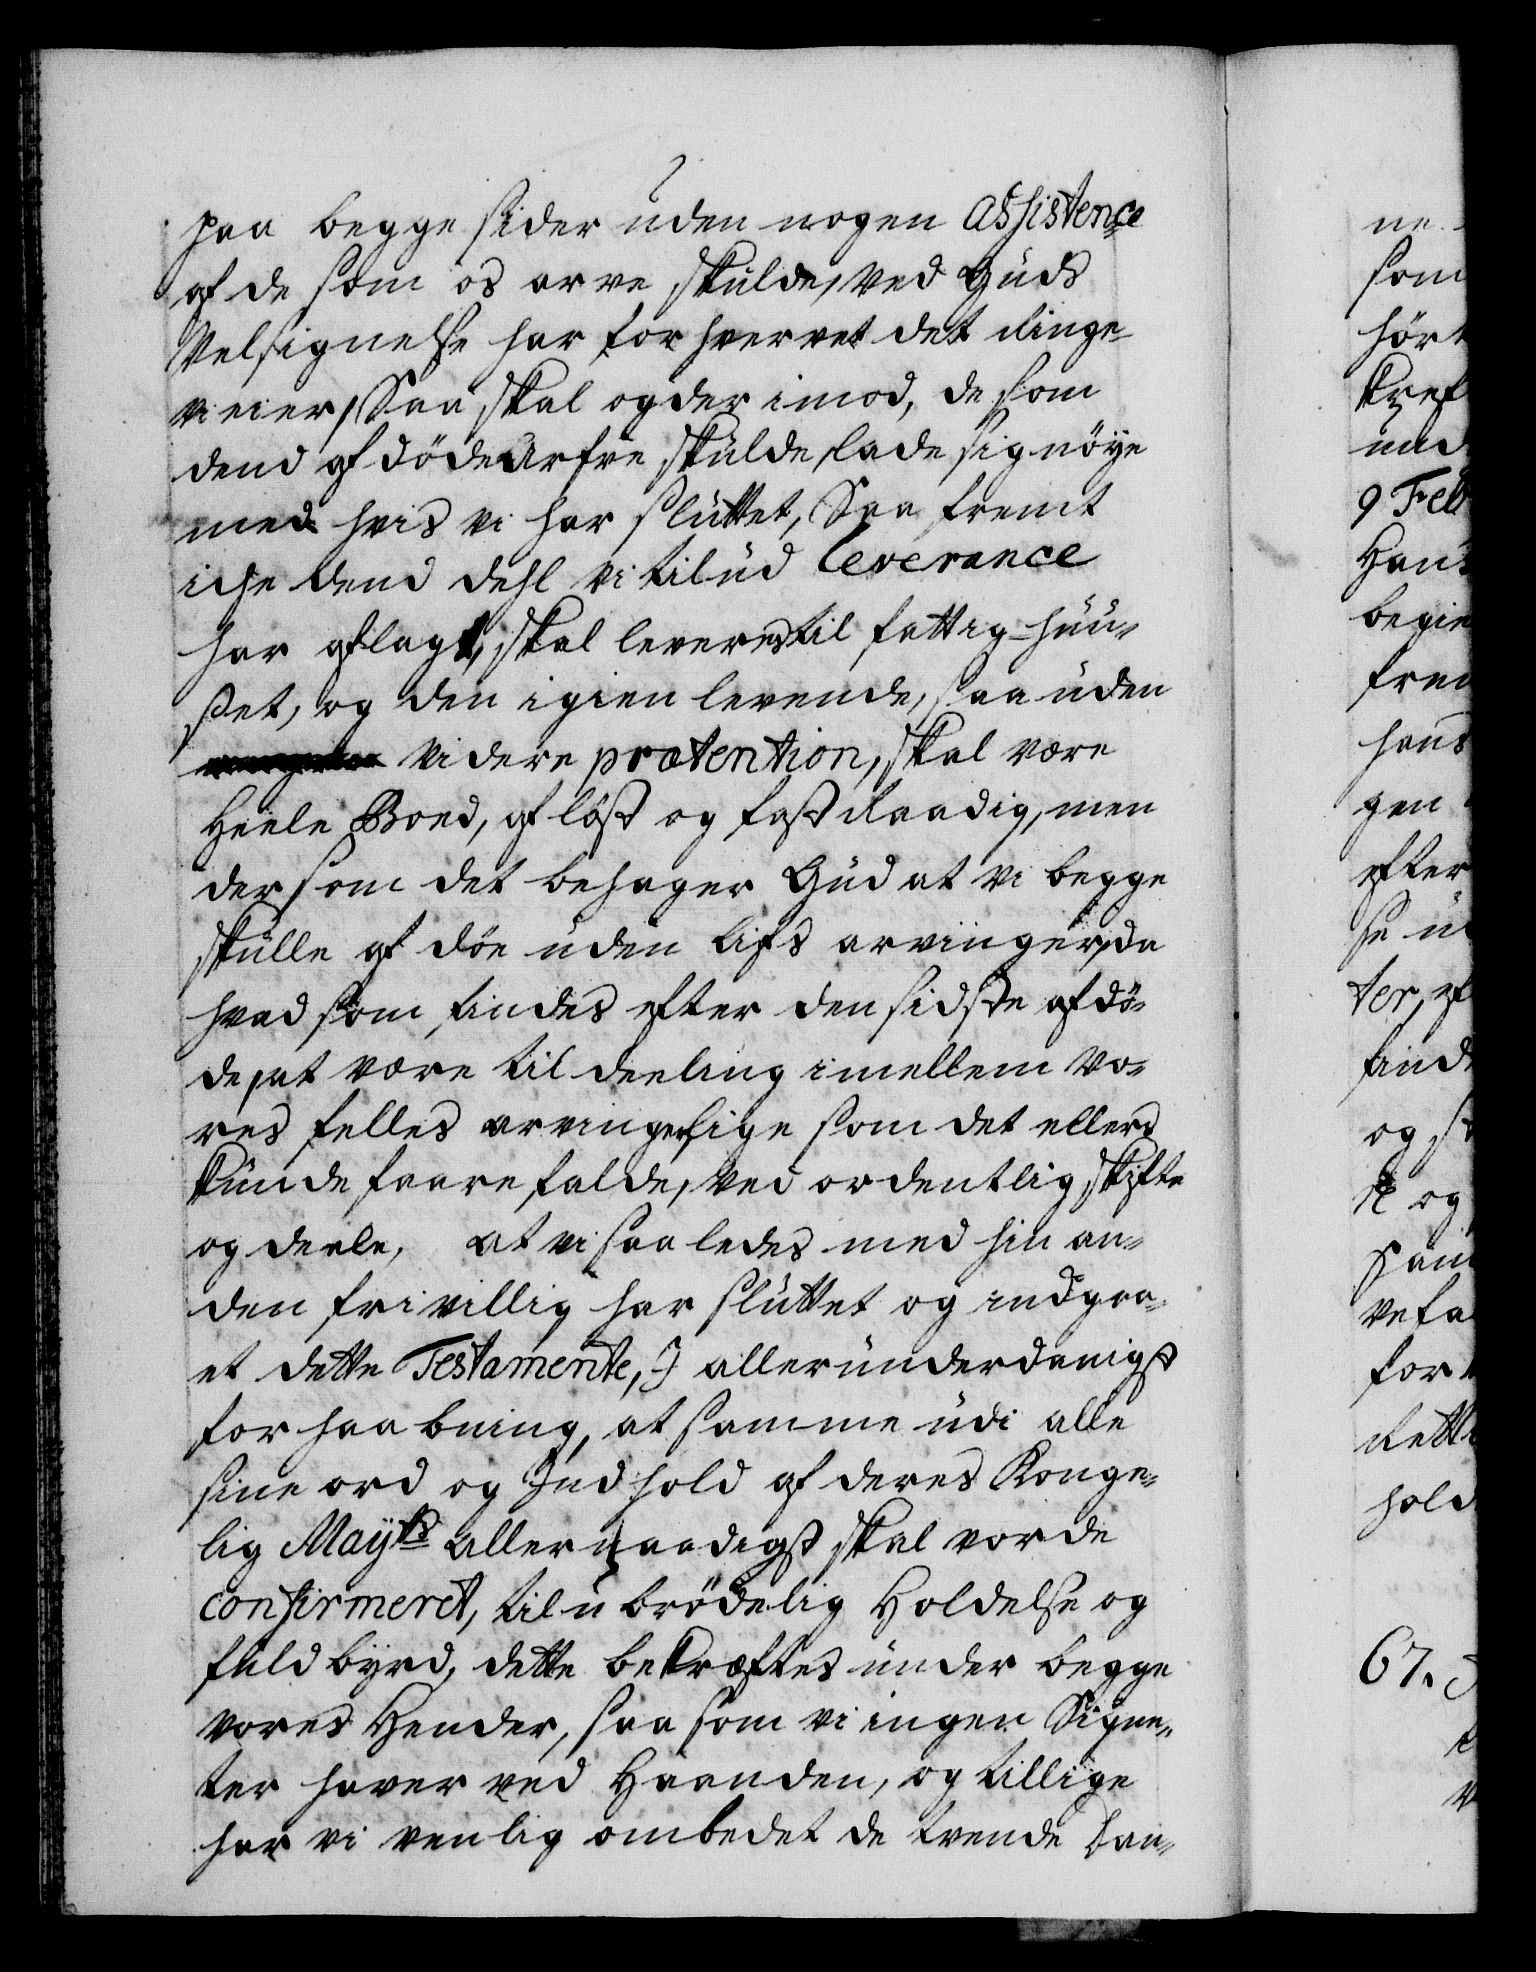 paa begge sider uden nogen Assistence
af de som os arve skulde, ved Guds
Velsignelse har forhvervet det ringe
vi eier, Saa skal og der imod, de som
dend afdøde Arfve skulde, lade sig nöye
med hvis vi har sluttet, Saa fremt
iche dend dehl vi til ud Leverance
har aflagt, skal leveres til fattig-huu-
set, og den igien levende, saa uden
videre prætention, skal være
Heele Boed, af löst og fast raadig, men
dersom det behager Gud at vi begge
skulle af döe uden lifs arvinger, da
hvad som findes efter den sidste afdö-
de, at være til deeling imellem vo-
res felles arvinger, lige som det ellers
kunde faarefalde, ved ordentlig skifte
og deele, at vi saaledes med hin an-
den frivillig har sluttet og indgaa-
et dette Testamente, J allerunderdanigst
forhaabning, at samme udi alle
sine ord og Indhold af deres Konge-
lig Mayts Allernaadigst skal vorde
confirmeret, til ubrödelig Holdelse og
fuldbyrd, dette bekræftes under begge
vores Hender, saasom vi ingen Signe-
ter haver ved Haanden, og tillige
har vi venlig ombedet de tvende Dan-
ne
som
9 Feb
efter
og
ter,
og
for
hold
67.